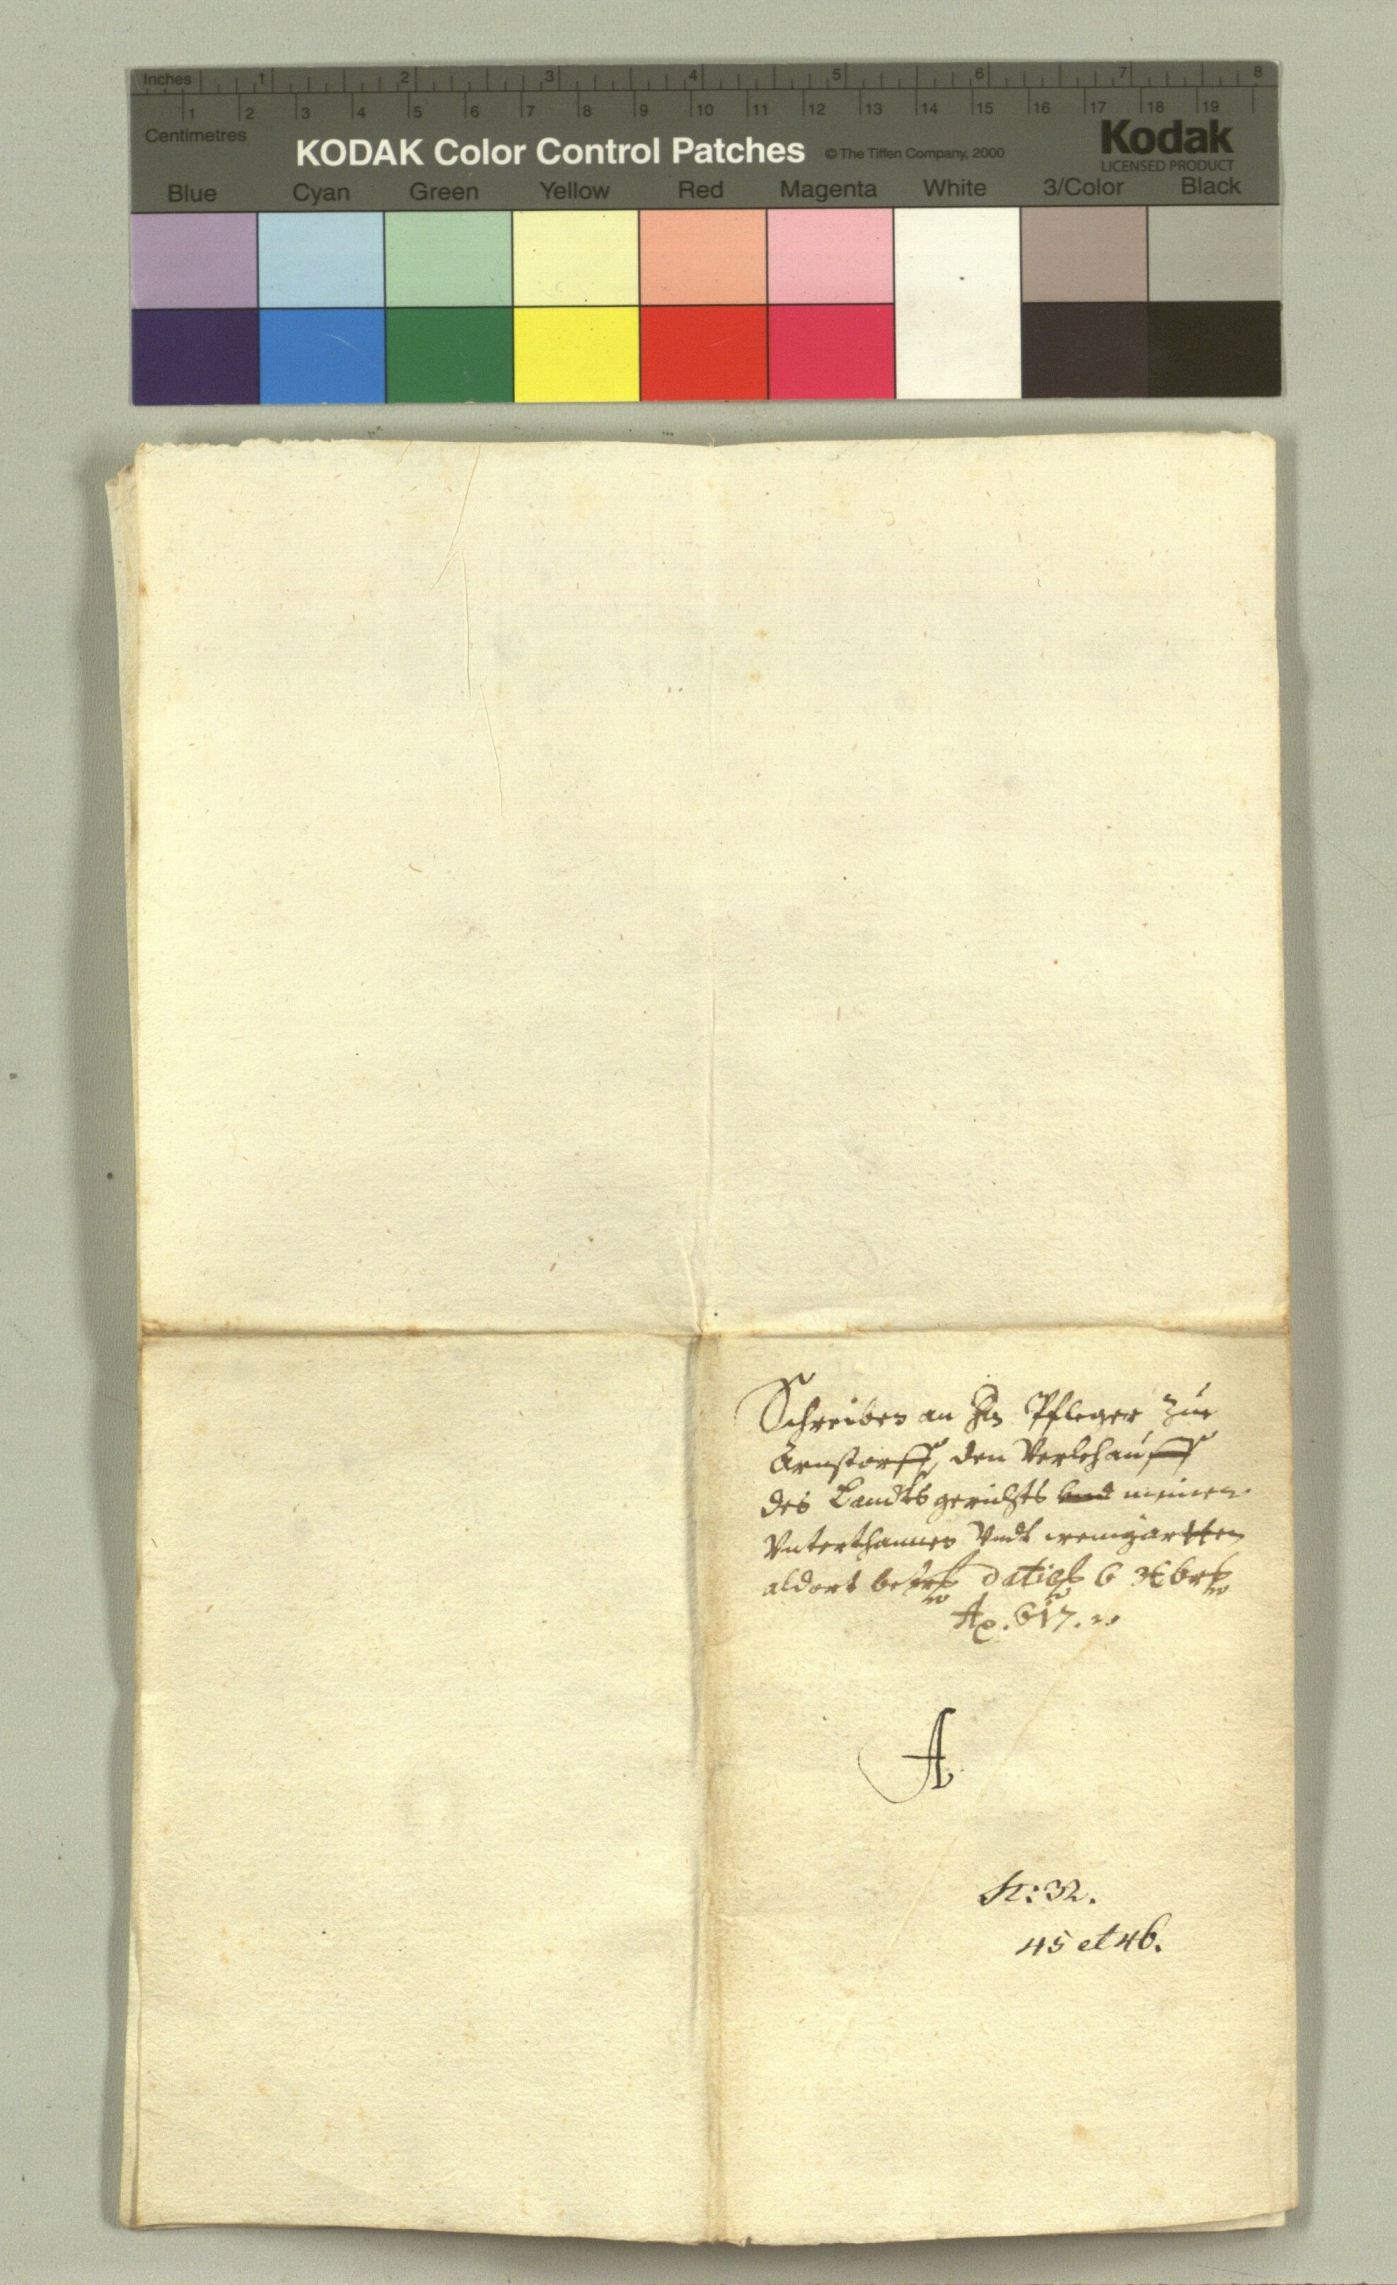 Inches 1 2 3 4 5 6 7 8
1 2 3 4 5 6 7 8 9 10 11 12 13 14 15 16 17 18 19
Centimetres
KODAK Color Control Patches © The Tiffen Company, 2000 Kodak
LICENSED PRODUCT
Blue Cyan Green Yellow Red Magenta White 3/Color Black
Schreiben an Hn Pfleger zue
Arnstorff, den Verkhauff
des Landtsgerichts meinen
Vnterthannen Vndt weingartten
aldort datirt 6 Xbris
Ao. 617.
A
N: 32.
45 et 46.